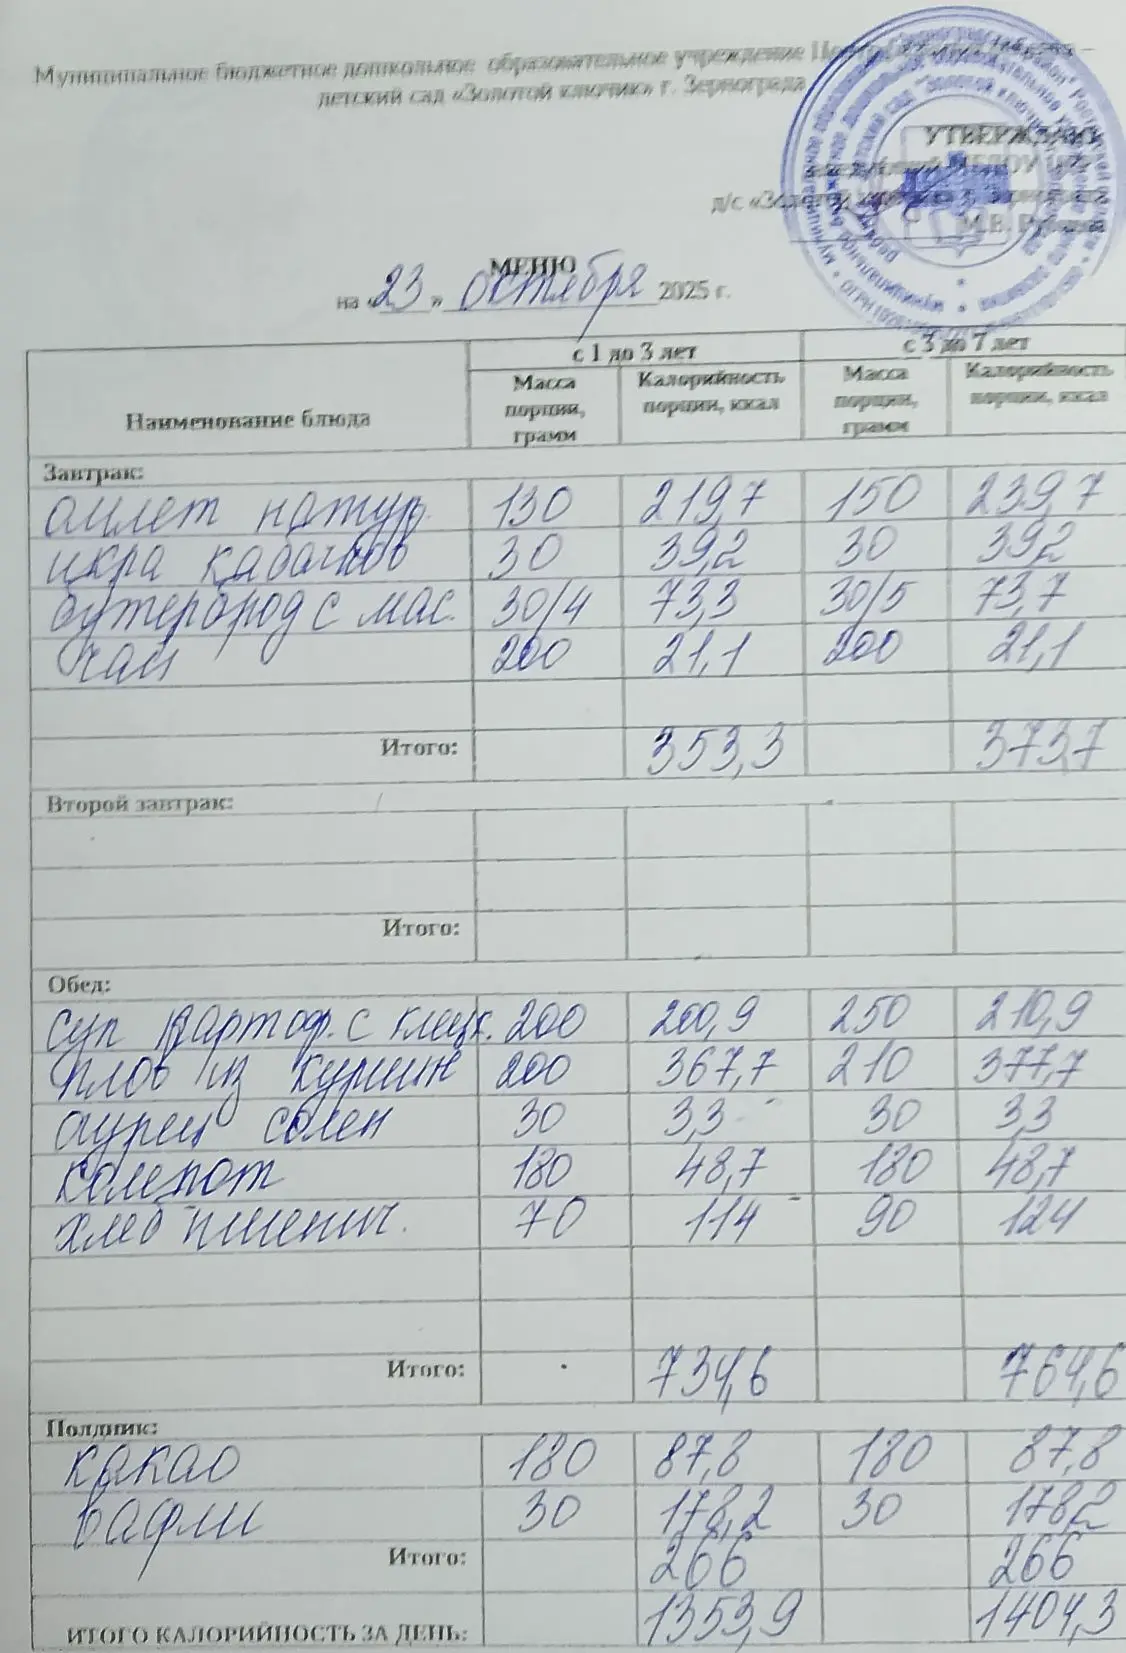 Муниципальное бюджетное дошкольное образовательное учреждение
детский сад «Золотой ключик» г. Зернограда
УТВЕРЖДАЮ
д/с «Золотой
М.В.
МЕНЮ
на «23» октября 2025 г.
Наименование блюда с 1 до 3 лет с 3 до 7 лет
Масса порции, грамм Калорийность порции, ккал Масса порции, грамм Калорийность порции, ккал
Завтрак:
омлет натур. 130 219,7 150 239,7
икра кабачков 30 39,2 30 39,2
бутерброд с мас. 30/4 73,3 30/5 73,7
чай 200 21,1 200 21,1
Итого: 353,3 373,7
Второй завтрак:
Итого:
Обед:
суп картоф. с клецк. 200 200,9 250 210,9
плов из курицы 200 367,7 210 377,7
огурец солен 30 3,3 30 3,3
компот 180 48,7 180 48,7
хлеб пшенич. 70 114 90 124
Итого: 734,6 764,6
Полдник:
какао 180 87,8 180 87,8
вафли 30 178,2 30 178,2
Итого: 266 266
ИТОГО КАЛОРИЙНОСТЬ ЗА ДЕНЬ: 1353,9 1404,3